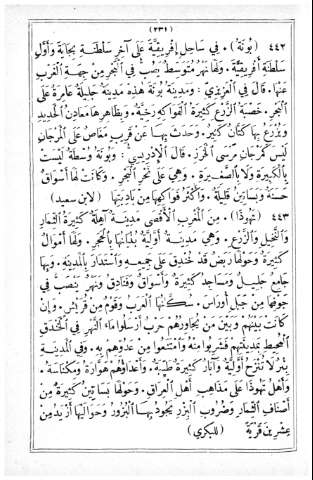 (٢٣١)
٤٤٢ (بُونَة). فِي سَاحِلِ إِفْرِيقِيَّةَ عَلَى آخِرِ سَلْطَنَةِ بِجَايَةَ وَأَوَّلِ
سَلْطَنَةِ أَفْرِيقِيَّةَ. وَلَهَا نَهْرٌ مُتَوَسِّطٌ يَصُبُّ فِي ٱلْبَحْرِ مِنْ جِهَةِ ٱلْغَرْبِ
عَنْهَا. قَالَ فِي ٱلْعَزِيزِيِّ: وَمَدِينَةُ بُونَةَ هٰذِهِ مَدِينَةٌ جَلِيلَةٌ عَامِرَةٌ عَلَى
ٱلْبَحْرِ. خَصْبَةُ ٱلزَّرْعِ كَثِيرَةُ ٱلْفَوَاكِهِ رَخِيَّةٌ. وَبِظَاهِرِهَا مَعَادِنُ ٱلْحَدِيدِ
وَيُزْرَعُ بِهَا كَتَّانٌ كَثِيرٌ. وَحَدَثَ بِهَا عَنْ قَرِيبٍ مَغَاصٌ عَلَى ٱلْمَرْجَانِ
لَيْسَ كَمَرْجَانِ مَرْسَى ٱلْخَرَزِ. قَالَ ٱلْإِدْرِيسِيُّ: وَبُونَةُ وَسْطَةٌ لَيْسَتْ
بِٱلْكَبِيرَةِ وَلَا بِٱلصَّغِيرَةِ. وَهِيَ عَلَى نَحْرِ ٱلْبَحْرِ. وَكَانَتْ لَهَا أَسْوَاقٌ
حَسَنَةٌ وَبَسَاتِينُ قَلِيلَةٌ. وَأَكْثَرُ فَوَاكِهِهَا مِنْ بَادِيَتِهَا (لابن سعيد)
٤٤٣ (تَهُوذَا). مِنَ ٱلْمَغْرِبِ ٱلْأَقْصَى مَدِينَةٌ آهِلَةٌ كَثِيرَةُ ٱلثِّمَارِ
وَٱلنَّخِيلِ وَٱلزَّرْعِ. وَهِيَ مَدِينَةٌ أَوَّلِيَّةٌ بُنْيَانُهَا بِٱلْحَجَرِ. وَلَهَا أَمْوَالٌ
كَثِيرَةٌ وَحَوْلَهَا رَبَضٌ قَدْ خُنْدِقَ عَلَى جَمِيعِهِ وَٱسْتَدَارَ بِٱلْمَدِينَةِ. وَبِهَا
جَامِعٌ جَلِيلٌ وَمَسَاجِدُ كَثِيرَةٌ وَأَسْوَاقٌ وَفَنَادِقُ وَنَهْرٌ يَنْصَبُّ فِي
جَوْفِهَا مِنْ جَبَلِ أَوْرَاسَ. سُكَّانُهَا ٱلْعَرَبُ وَقَوْمٌ مِنْ قُرَيْشٍ. وَإِنْ
كَانَتْ بَيْنَهُمْ وَبَيْنَ مَنْ يُجَاوِرُهُمْ حَرْبٌ أَرْسَلُوا مَاءَ ٱلنَّهْرِ فِي ٱلْخَنْدَقِ
ٱلْمُحِيطِ بِمَدِينَتِهِمْ فَشَرِبُوا مِنْهُ وَٱمْتَنَعُوا مِنْ عَدُوِّهِمْ بِهِ. وَفِي ٱلْمَدِينَةِ
بِئْرٌ لَا تُنْزَحُ أَوَّلِيَّةٌ وَآبَارٌ كَثِيرَةٌ طَيِّبَةٌ. وَأَعْدَاؤُهُمْ هَوَّارَةُ وَمِكْنَاسَةُ.
وَأَهْلُ تَهُوذَا عَلَى مَذَاهِبِ أَهْلِ ٱلْعِرَاقِ. وَحَوْلَهَا بَسَاتِينُ كَثِيرَةٌ مِنْ
أَصْنَافِ ٱلثِّمَارِ وَضُرُوبِ ٱلْبَزْرِ يَجُودُ بِهَا ٱلْبُزُورُ وَحَوَالَيْهَا أَزْيَدُ مِنْ
عِشْرِينَ قَرْيَةً (للبكري)